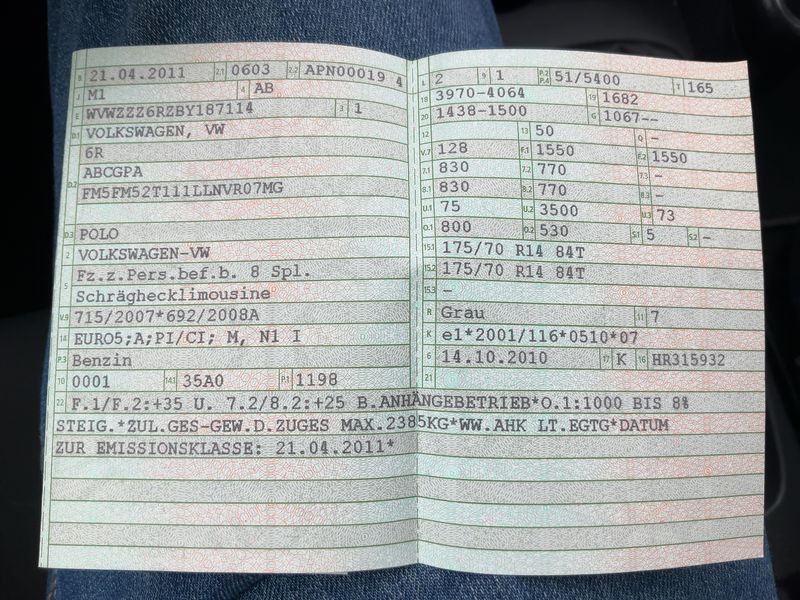 B 21.04.2011 2.1 0603 2.2 APN00019 4
J M1 4 AB
E WVWZZZ6RZBY187114 3 1
D.1 VOLKSWAGEN, VW
6R
D.2 ABCGPA
FM5FM52T111LLNVR07MG
D.3 POLO
2 VOLKSWAGEN-VW
5 Fz.z.Pers.bef.b. 8 Spl.
Schräghecklimousine
V.9 715/2007*692/2008A
14 EURO5;A;PI/CI; M, N1 I
P.3 Benzin
10 0001 14.1 35A0 P.1 1198
L 2 9 1 P.2 P.4 51/5400 T 165
18 3970-4064 19 1682
20 1438-1500 G 1067--
12 13 50 Q -
V.7 128 F.1 1550 F.2 1550
7.1 830 7.2 770 7.3 -
8.1 830 8.2 770 8.3 -
U.1 75 U.2 3500 U.3 73
O.1 800 O.2 530 S.1 5 S.2 -
15.1 175/70 R14 84T
15.2 175/70 R14 84T
15.3 -
R Grau 11 7
K e1*2001/116*0510*07
6 14.10.2010 17 K 16 HR315932
21
22 F.1/F.2:+35 U. 7.2/8.2:+25 B.ANHÄNGEBETRIEB*O.1:1000 BIS 8%
STEIG.*ZUL.GES-GEW.D.ZUGES MAX.2385KG*WW.AHK LT.EGTG*DATUM
ZUR EMISSIONSKLASSE: 21.04.2011*